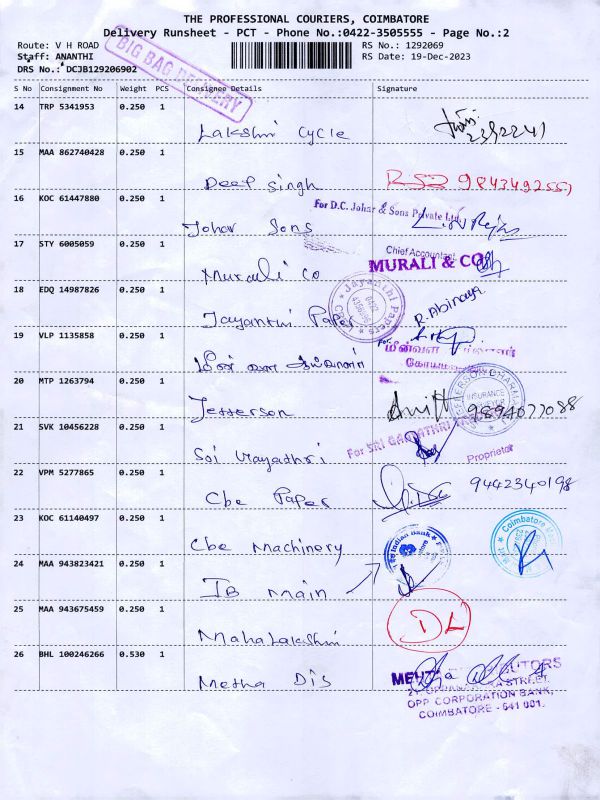 THE PROFESSIONAL COURIERS, COIMBATORE
Delivery Runsheet - PCT - Phone No.:0422-3505555 - Page No.:2
Route: V H ROAD
RS No.: 1292069
Staff: ANANTHI
RS Date: 19-Dec-2023
DRS No.: DCJB129206902
BIG BAG DELIVERY
S No Consignment No Weight PCS Consignee Details Signature
14 TRP 5341953 0.250 1
Lakshmi Cycle
15 MAA 862740428 0.250 1
Deep Singh
RSD 9843492557
16 KOC 61447880 0.250 1
For D.C. Johar & Sons Private Ltd.
Johar Sons
17 STY 6005059 0.250 1
Chief Accountant
MURALI & CO
Murali Co
18 EDQ 14987826 0.250 1
Jayanthi Papers
Jayanthi Paper
R. Abinaya
19 VLP 1135858 0.250 1
மீன்வள
20 MTP 1263794 0.250 1
INSURANCE
SURVEYOR
Jefferson
9894077088
21 SVK 10456228 0.250 1
For SRI GAYATHRI
Sri Gayathri
Proprietor
22 VPM 5277865 0.250 1
Cbe Paper
9442340198
23 KOC 61140497 0.250 1
Indian Bank
Coimbatore
Cbe Machinery
24 MAA 943823421 0.250 1
IB main
25 MAA 943675459 0.250 1
DL
Mahalakshmi
26 BHL 100246266 0.530 1
Metha Dis
OPP CORPORATION BANK,
COIMBATORE - 641 001.